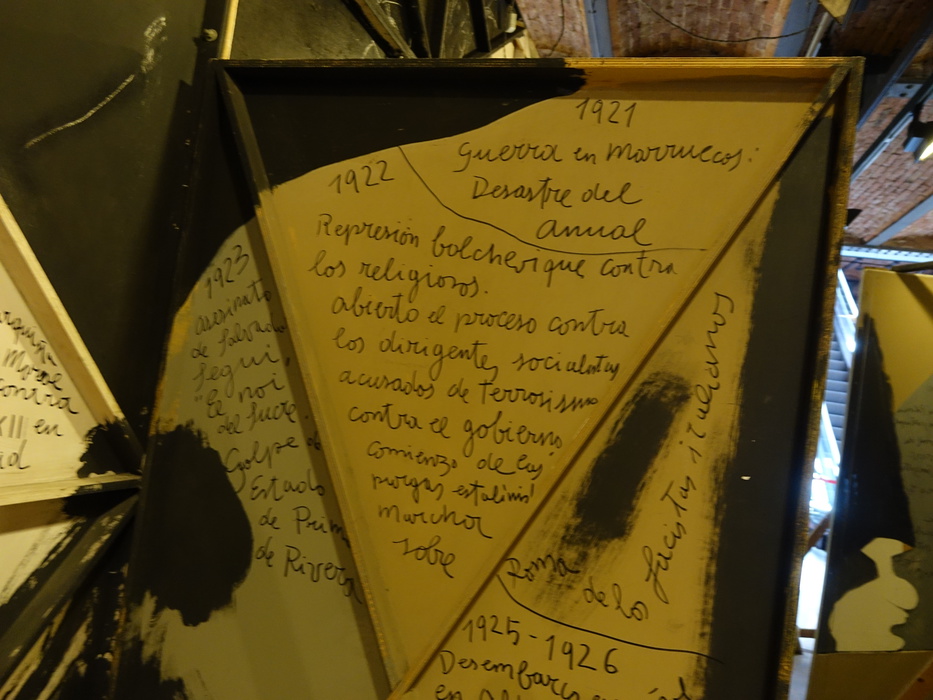 1921
Guerra en Marruecos:
Desastre del
Annual
1922
Represión bolchevique contra
los religiosos.
abierto el proceso contra
los dirigentes socialistas
acusados de terrorismo
contra el gobierno
comienzo de las
purgas
Marcha
sobre
Roma
de los
fascistas italianos
1923
asesinato
de Salvador
Seguí,
"El noi
del sucre".
Golpe de
Estado
de Primo
de Rivera
1925-1926
Desembarco
en
contra
XII en